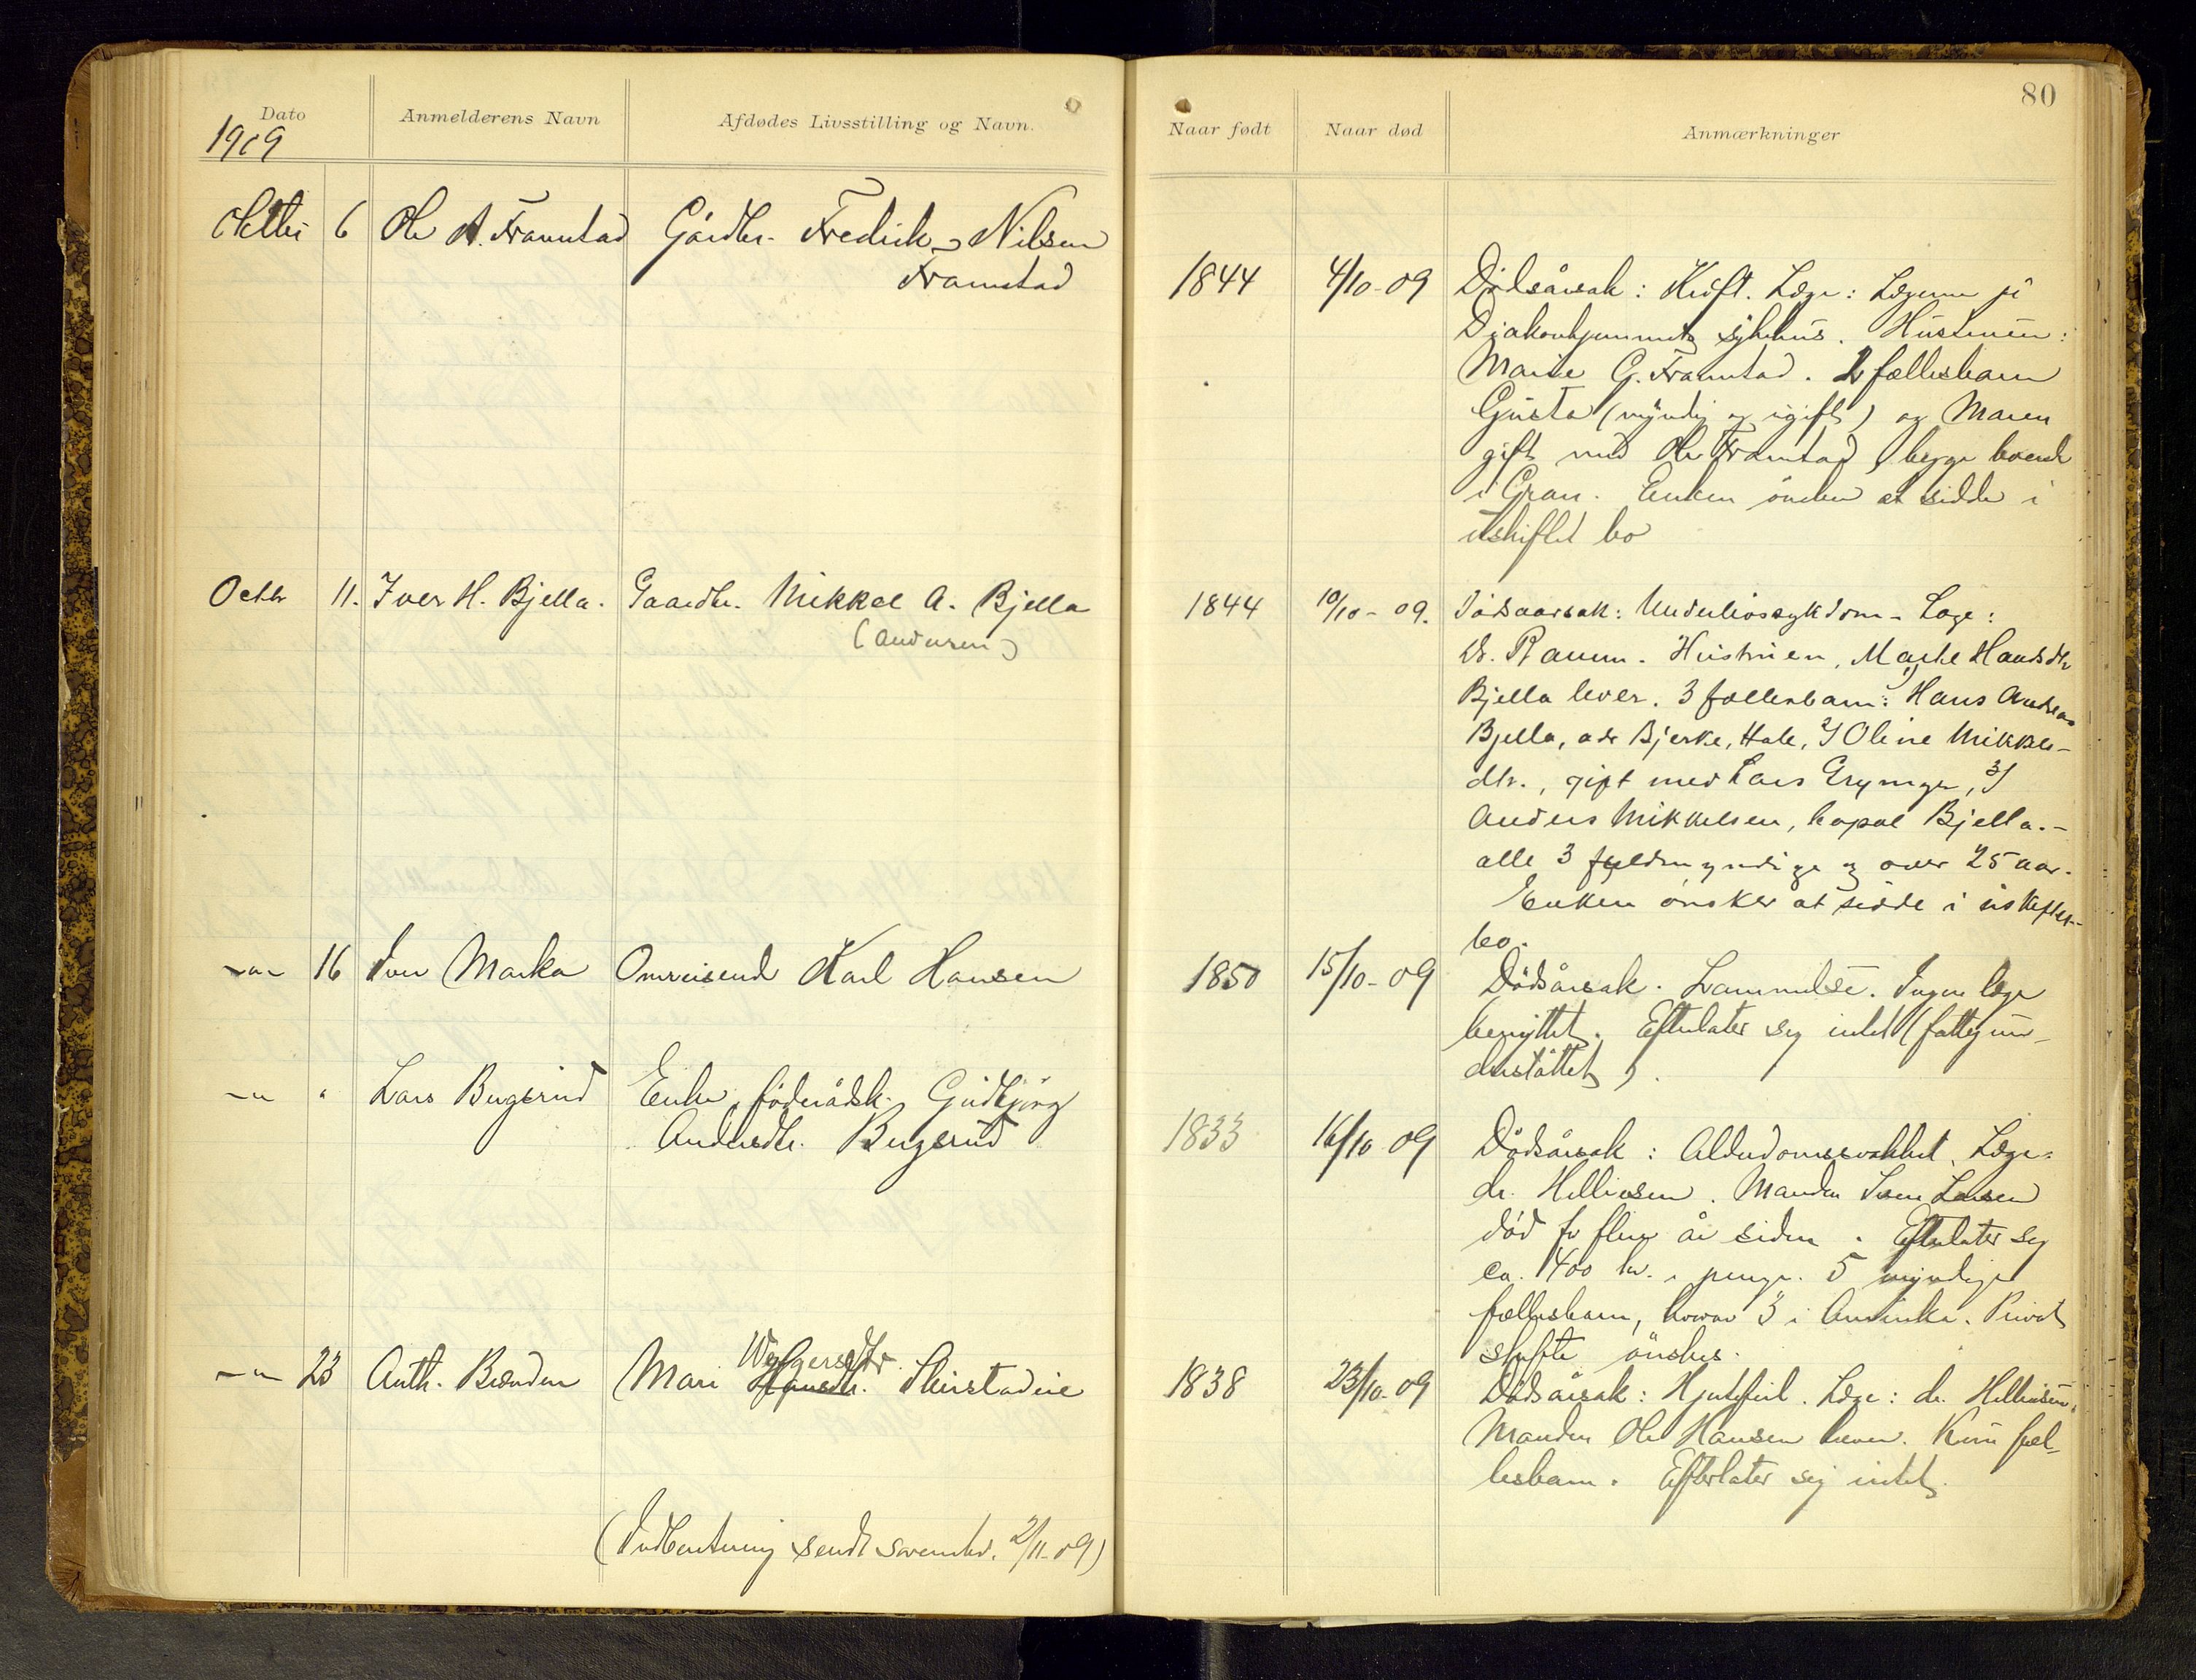 80
Dato
Anmelderens Navn
Afdødes Livsstilling og Navn.
Naar født
Naar død
Anmærkninger
1909
Oktbr 6 Ole A. Framstad Gårdbr. Fredrik Nilsen
Framstad
1844 4/10-09 Dødsårsak: Kræft. Læge: Lægerne på
Diakonhjemmets sykehus. Hustruen:
Marie G. Framstad. 2 fællesbarn
Gusta (myndig og ugift) og Maren
gift med Ole Framstad, begge boende
i Gran. Enken ønsker at sidde i
uskiftet bo
Octbr 11. Iver H. Bjella. Gaardbr. Mikkel A. Bjella
(Andersen)
1844 10/10-09. Dødsaarsak: Underlivssykdom - Læge:
Dr. Ramm. Hustruen, Marthe Hansdtr
Bjella lever. 3 fællesbarn: 1) Hans Andreas
Bjella, adr Bjerke, Hole, 2) Oline Mikkels-
dtr., gift med Lars Grynge, 3)
Anders Mikkelsen, bopæl Bjella.-
alle 3 fuldmyndige og over 25 aar.
Enken ønsker at sidde i uskiftet
bo.
-"- 16 Iver Marka Omreisende Karl Hansen
1850 15/10-09 Dødsårsak. Lammelse. Ingen læge
benyttet. Efterlater sig intet (fattigun-
derstøttet).
-"- " Lars Bugsrud Enke, føderådsk. Gudbjørg
Andersdtr. Bugsrud
1833 16/10 09 Dødsårsak: Alderdomssvakhet. Læge:
dr. Helliesen. Manden Iver Larsen
død for flere år siden. Efterlater sig
ca. 400 kr. i penge. 5 myndige
fællesbarn, hvorav 3 i Amerika. Privat
skifte ønskes.
-"- 23 Anth. Brænden Mari Hansdtr. Skirstadeie
Wiggersdtr.
1838 23/10-09 Dødsårsak: Hjertefeil. Læge: dr. Helliesen.
Manden Ole Hansen lever. Kun fæl-
lesbarn. Efterlater sig intet.
(Indberetning sendt sorenskr. 2/11-09)